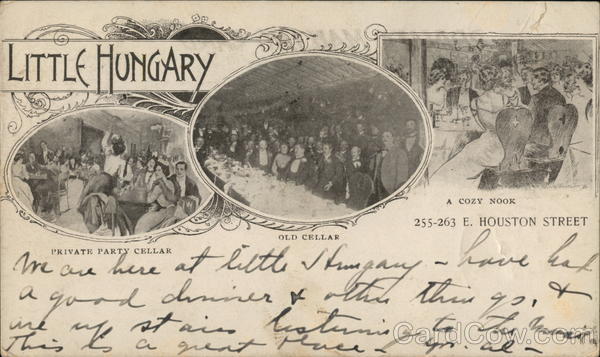 LITTLE HUNGARY
PRIVATE PARTY CELLAR
OLD CELLAR
A COZY NOOK
255-263 E. HOUSTON STREET
We are here at little Hungary - have had
a good dinner & other things, &
are up stairs listening to the music
This is a great place -
CardCow.com